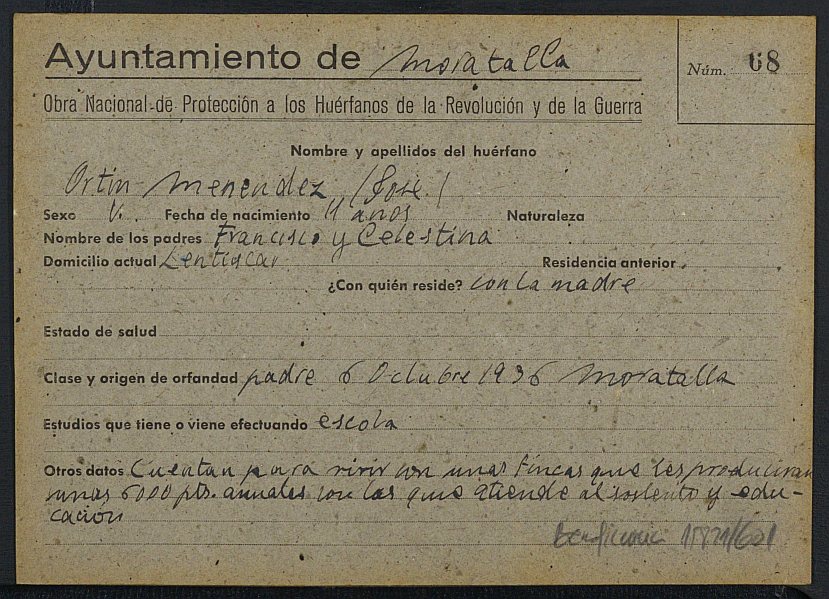 Ayuntamiento de Moratalla
Núm. 68
Obra Nacional de Protección a los Huérfanos de la Revolución y de la Guerra
Nombre y apellidos del huérfano
Ortin Menendez (José)
Sexo V. Fecha de nacimiento 11 años Naturaleza
Nombre de los padres Francisco y Celestina
Domicilio actual Lentiscar Residencia anterior
¿Con quién reside? con la madre
Estado de salud
Clase y origen de orfandad padre 6 Octubre 1936 Moratalla
Estudios que tiene o viene efectuando escola
Otros datos Cuentan para vivir con unas fincas que les produciran
unas 6000 pts. anuales con las que atiende al sostento y edu-
cación